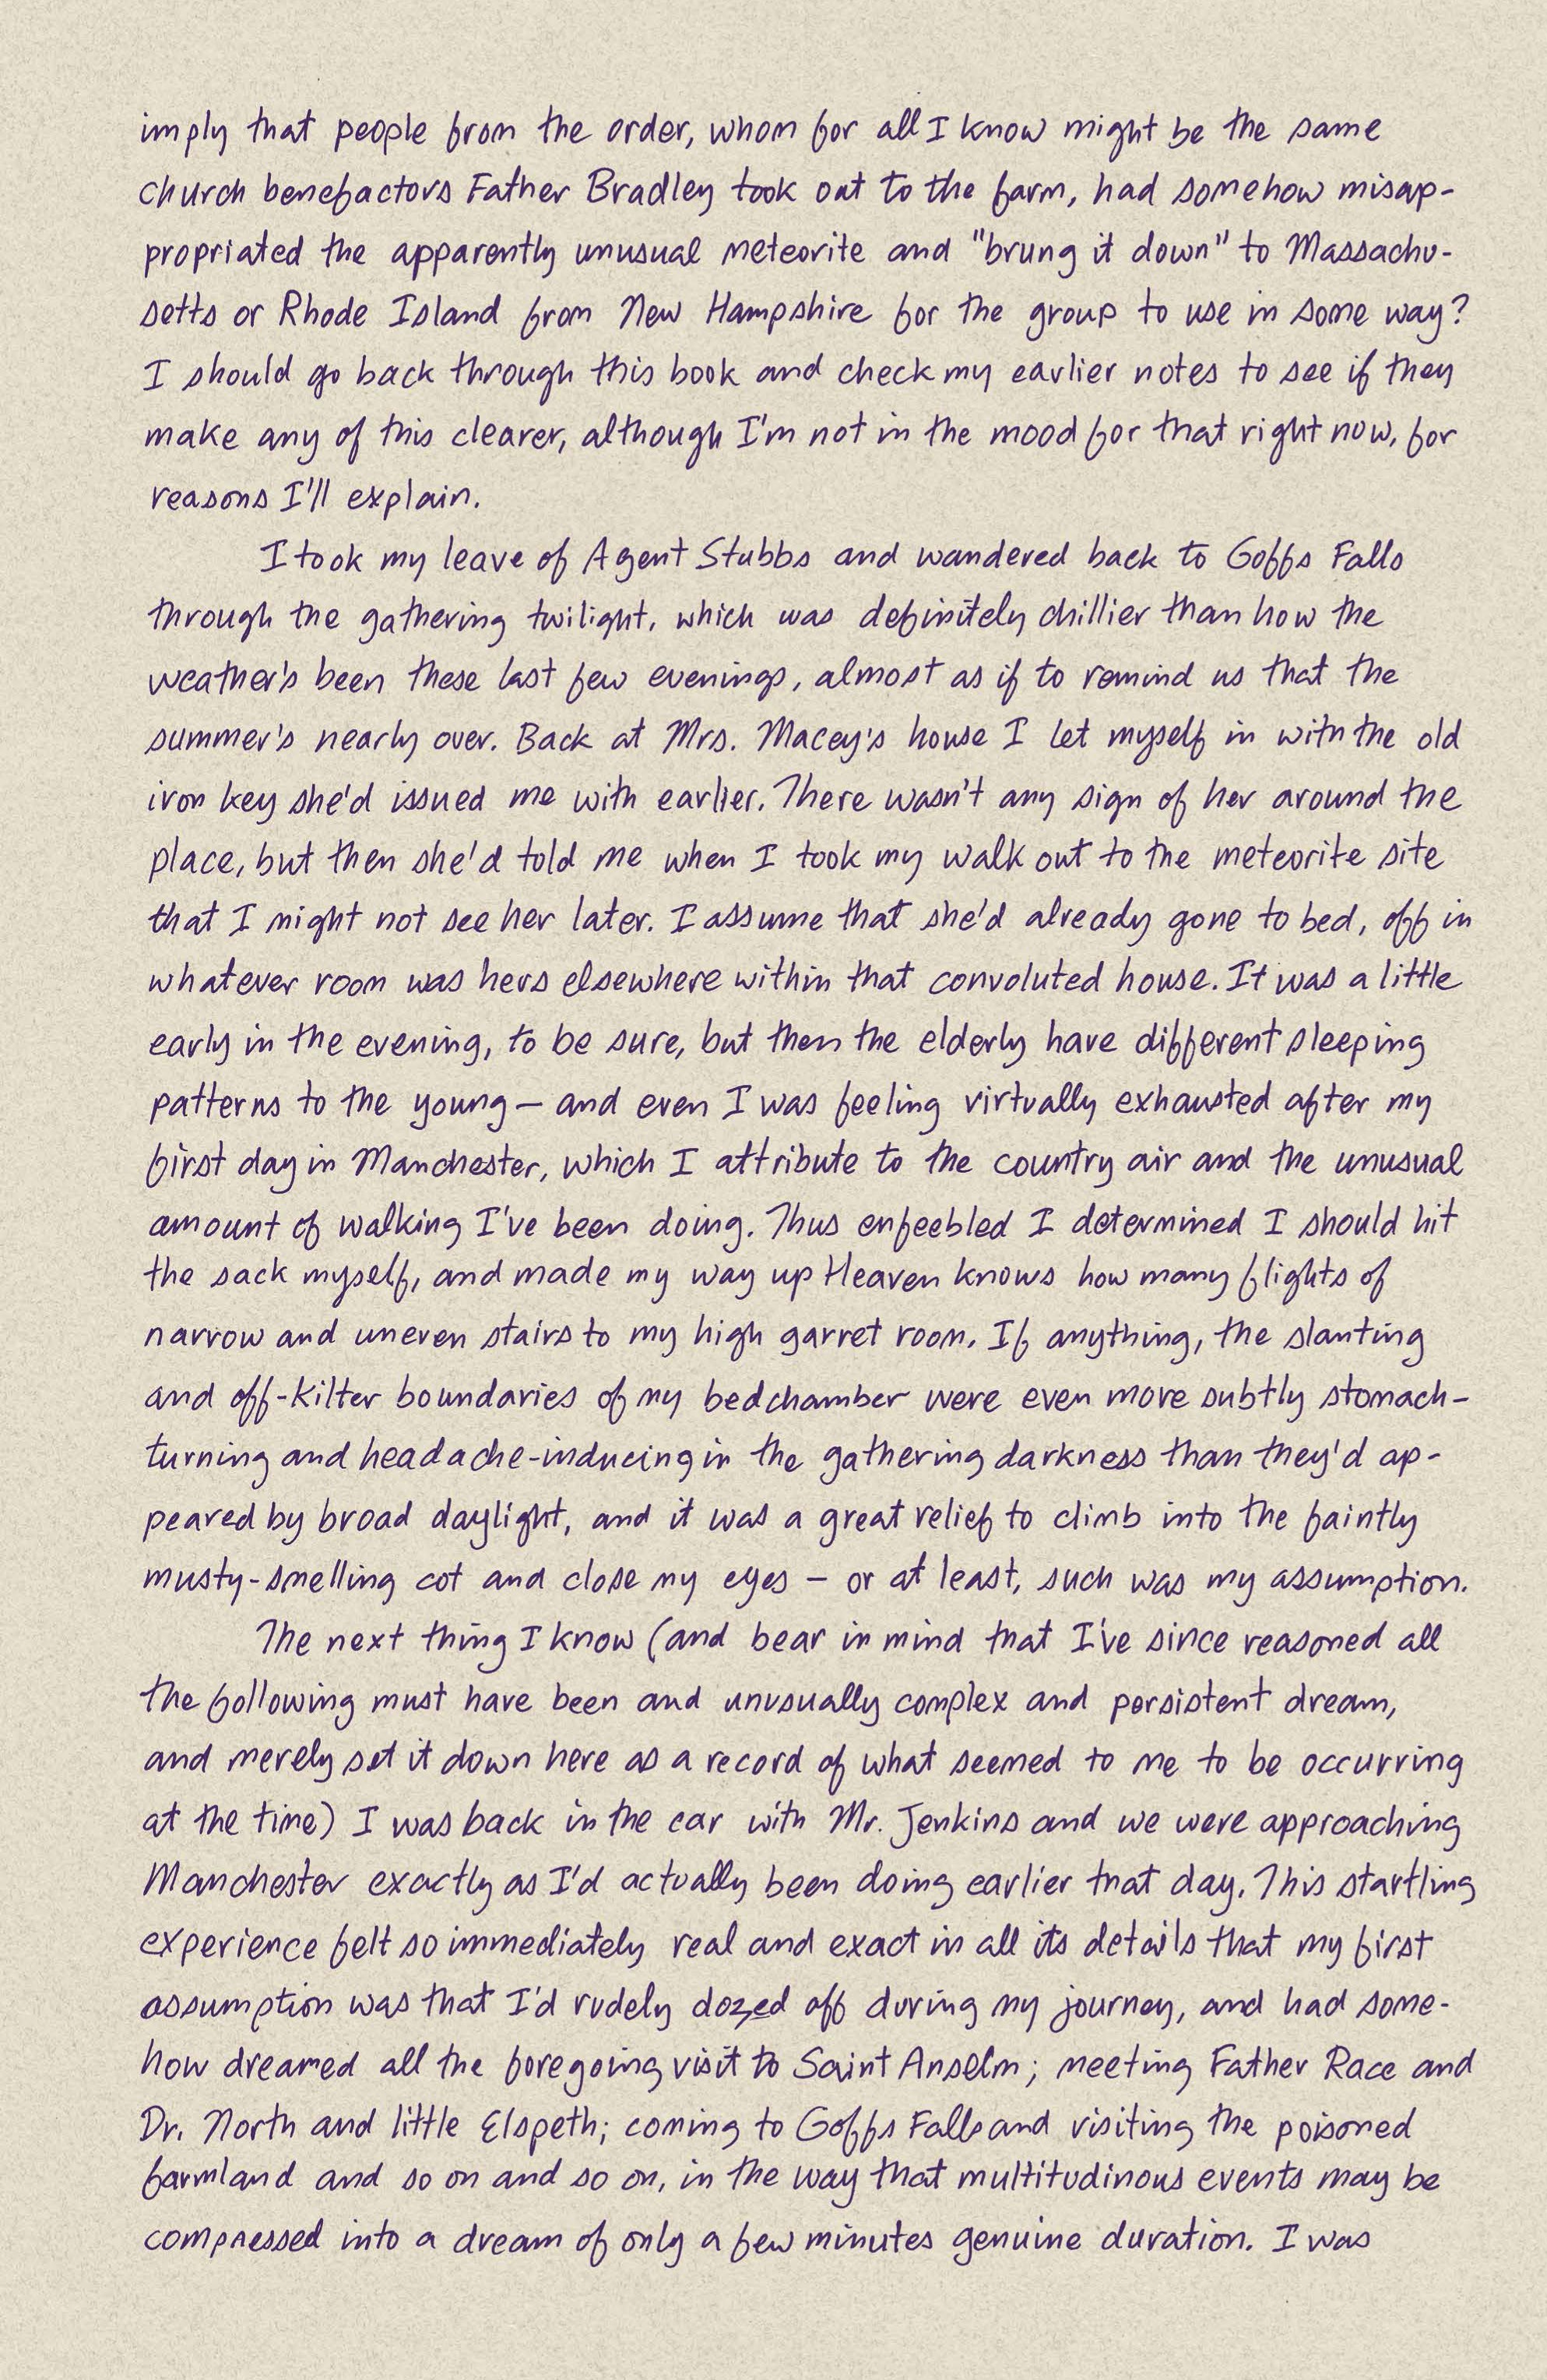 imply that people from the order, whom for all I know might be the same
church benefactors Father Bradley took out to the farm, had somehow misap-
propriated the apparently unusual meteorite and "brung it down" to Massachu-
setts or Rhode Island from New Hampshire for the group to use in some way?
I should go back through this book and check my earlier notes to see if they
make any of this clearer, although I'm not in the mood for that right now, for
reasons I'll explain.
I took my leave of Agent Stubbs and wandered back to Goffs Falls
through the gathering twilight, which was definitely chillier than how the
weather's been these last few evenings, almost as if to remind us that the
summer's nearly over. Back at Mrs. Macey's house I let myself in with the old
iron key she'd issued me with earlier. There wasn't any sign of her around the
place, but then she'd told me when I took my walk out to the meteorite site
that I might not see her later. I assume that she'd already gone to bed, off in
whatever room was hers elsewhere within that convoluted house. It was a little
early in the evening, to be sure, but then the elderly have different sleeping
patterns to the young — and even I was feeling virtually exhausted after my
first day in Manchester, which I attribute to the country air and the unusual
amount of walking I've been doing. Thus enfeebled I determined I should hit
the sack myself, and made my way up Heaven knows how many flights of
narrow and uneven stairs to my high garret room. If anything, the slanting
and off-kilter boundaries of my bedchamber were even more subtly stomach-
turning and headache-inducing in the gathering darkness than they'd ap-
peared by broad daylight, and it was a great relief to climb into the faintly
musty-smelling cot and close my eyes — or at least, such was my assumption.
The next thing I know (and bear in mind that I've since reasoned all
the following must have been and unusually complex and persistent dream,
and merely set it down here as a record of what seemed to me to be occurring
at the time) I was back in the car with Mr. Jenkins and we were approaching
Manchester exactly as I'd actually been doing earlier that day. This startling
experience felt so immediately real and exact in all its details that my first
assumption was that I'd rudely dozed off during my journey, and had some-
how dreamed all the foregoing visit to Saint Anselm; meeting Father Race and
Dr. North and little Elspeth; coming to Goffs Falls and visiting the poisoned
farmland and so on and so on, in the way that multitudinous events may be
compressed into a dream of only a few minutes genuine duration. I was